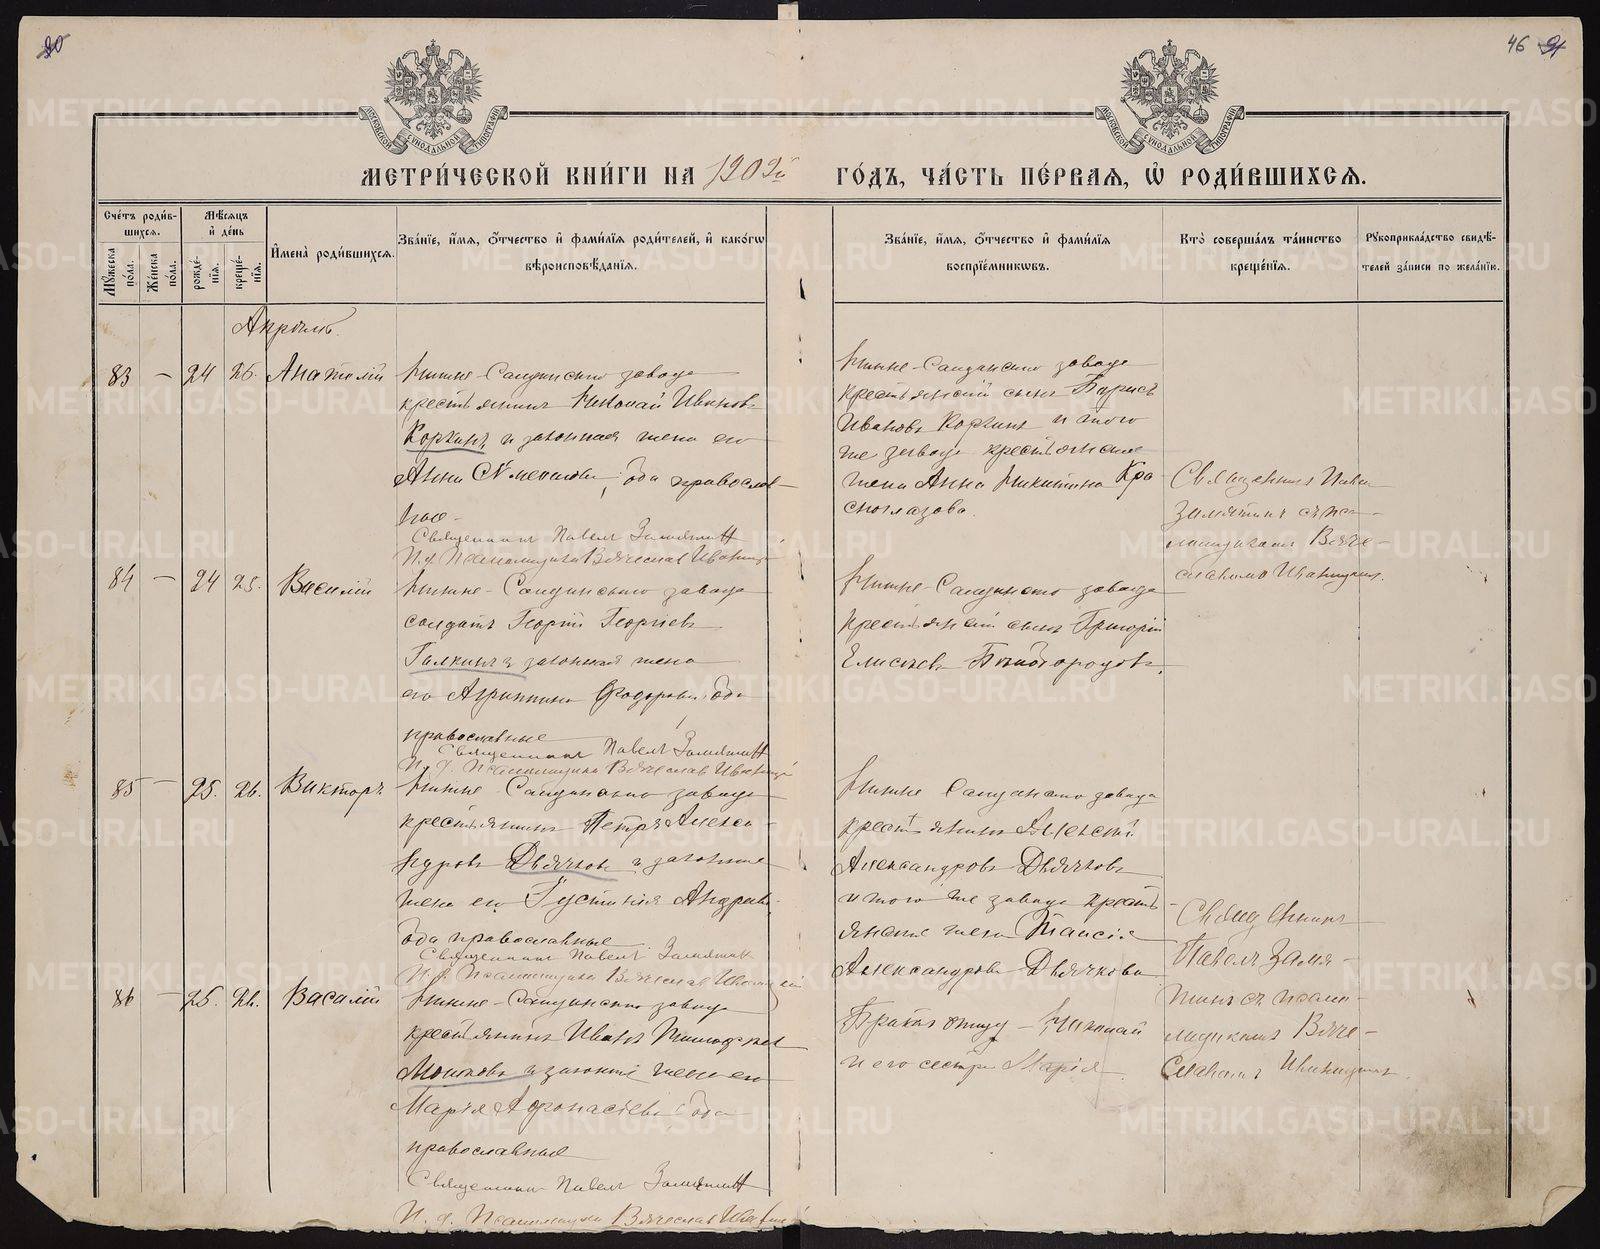 46
МЕТРИ́ЧЕСКОЙ КНИ́ГИ НА 1909й ГО́ДЪ, ЧА́СТЬ ПЕ́РВАЯ, Ѡ҆ РОДИ́ВШИХСѦ.
Сче́тъ роди́в-
шихсѧ.
Мѹ́жеска по́ла.
Же́нска по́ла.
Мѣ́сѧцъ и҆ де́нь
рожде́-
нїѧ.
креще́-
нїѧ.
И҆мена̀ роди́вшихсѧ.
Зва́нїе, и҆́мѧ, ѻ҆́тчество и҆ фами́лїѧ роди́телей, и҆ како́гѡ
вѣроисповѣ́данїѧ.
Зва́нїе, и҆́мѧ, ѻ҆́тчество и҆ фами́лїѧ
воспрїе́мникѡвъ.
Кто̀ соверша́лъ та́инство
креще́нїѧ.
Рѹкоприкла́дство свидѣ́-
телей за́писи по жела́нїю.
Апрѣль.
83 — 24 26. Анатолій
Нижне-Салдинскаго завода
крестьянинъ Николай Ивановъ
Коркинъ и законная жена его
Анна Симеонова, оба православ-
ные
Священникъ Павелъ Замятинъ
И. д. Псаломщика Вячеслав Иваницкій
Нижне-Салдинскаго завода
крестьянскій сынъ Борисъ
Ивановъ Коркинъ и того
же завода крестьянская
жена Анна Никитина Кра-
сноглазова.
Священникъ Павелъ
Замятинъ съ пса-
ломщикомъ Вяче-
славомъ Иваницкимъ.
84 — 24 25. Василій
Нижне-Салдинскаго завода
солдатъ Георгій Георгіевъ
Галкинъ и законная жена
его Агриппина Ѳеодорова, оба
православные
Священникъ Павелъ Замятинъ
И. д. Псаломщика Вячеслав Иваницкій
Нижне-Салдинскаго завода
крестьянскій сынъ Григорій
Елисѣевъ
85 — 25. 26. Викторъ
Нижне-Салдинскаго завода
крестьянинъ Петръ Алекса-
ндровъ Дьячковъ и законная
жена его Іустинія Андреева,
оба православные
Священникъ Павелъ Замятинъ
И. д. Псаломщика Вячеслав Иваницкій
Нижне Салдинскаго завода
крестьянинъ Алексѣй
Александровъ Дьячковъ
и того же завода кресть-
янская жена Таисія
Александрова Дьячкова
Священникъ
Павелъ Замя-
тинъ съ псало-
мщикомъ Вяче-
славомъ Иваницкимъ.
86 — 25. 26. Василій
Нижне-Салдинскаго завода
крестьянинъ Иванъ Тимофеев
и законная жена его
Марія Афонасіева оба
православные
Священникъ Павелъ Замятинъ
И. д. Псаломщика Вячеслав Иваницкій
Братъ отцу — Николай
и его сестра Марія
METRIKI.GASO-URAL.RU